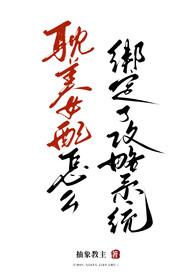 耽美女配怎么
绑定了攻略系统
抽象教主 著